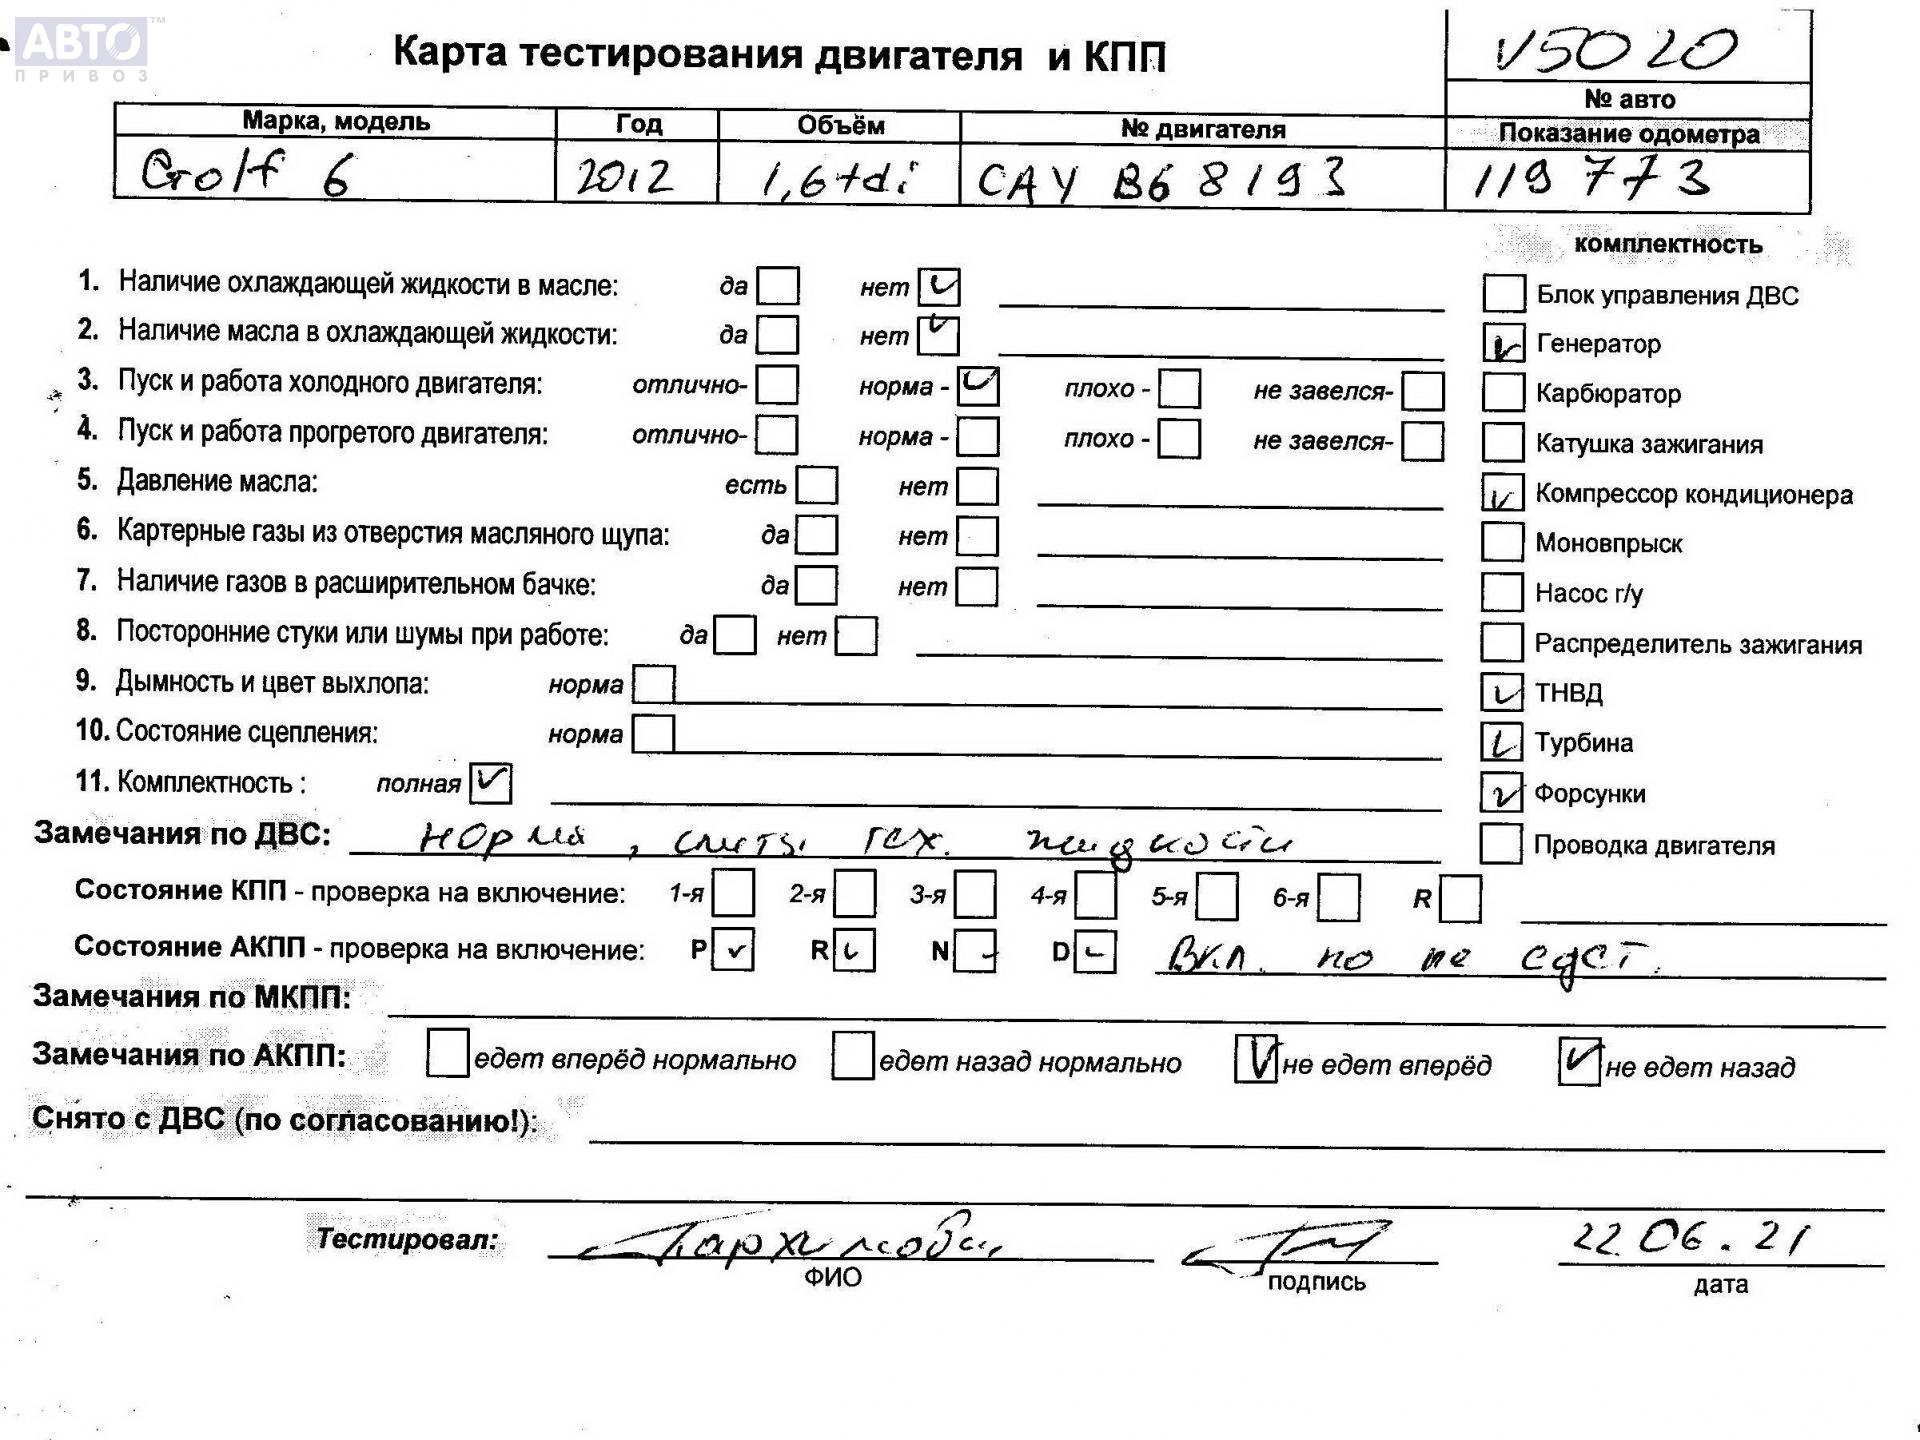 АВТО ™
ПРИВОЗ
Карта тестирования двигателя и КПП
V5020
№ авто
Марка, модель Год Объём № двигателя Показание одометра
Golf 6 2012 1,6 tdi CAY B68193 119 773
комплектность
1. Наличие охлаждающей жидкости в масле: да нет
Блок управления ДВС
2. Наличие масла в охлаждающей жидкости: да нет
Генератор
3. Пуск и работа холодного двигателя: отлично- норма - плохо - не завелся-
Карбюратор
4. Пуск и работа прогретого двигателя: отлично- норма - плохо - не завелся-
Катушка зажигания
5. Давление масла: есть нет
Компрессор кондиционера
6. Картерные газы из отверстия масляного щупа: да нет
Моновпрыск
7. Наличие газов в расширительном бачке: да нет
Насос г/у
8. Посторонние стуки или шумы при работе: да нет
Распределитель зажигания
9. Дымность и цвет выхлопа: норма
ТНВД
10. Состояние сцепления: норма
Турбина
11. Комплектность : полная
Форсунки
Замечания по ДВС: норма, слиты тех. жидкости
Проводка двигателя
Состояние КПП - проверка на включение: 1-я 2-я 3-я 4-я 5-я 6-я R
Состояние АКПП - проверка на включение: P R N D Вкл. но не едет.
Замечания по МКПП:
Замечания по АКПП: едет вперёд нормально едет назад нормально не едет вперёд не едет назад
Снято с ДВС (по согласованию!):
Тестировал: 22.06.21
ФИО подпись дата